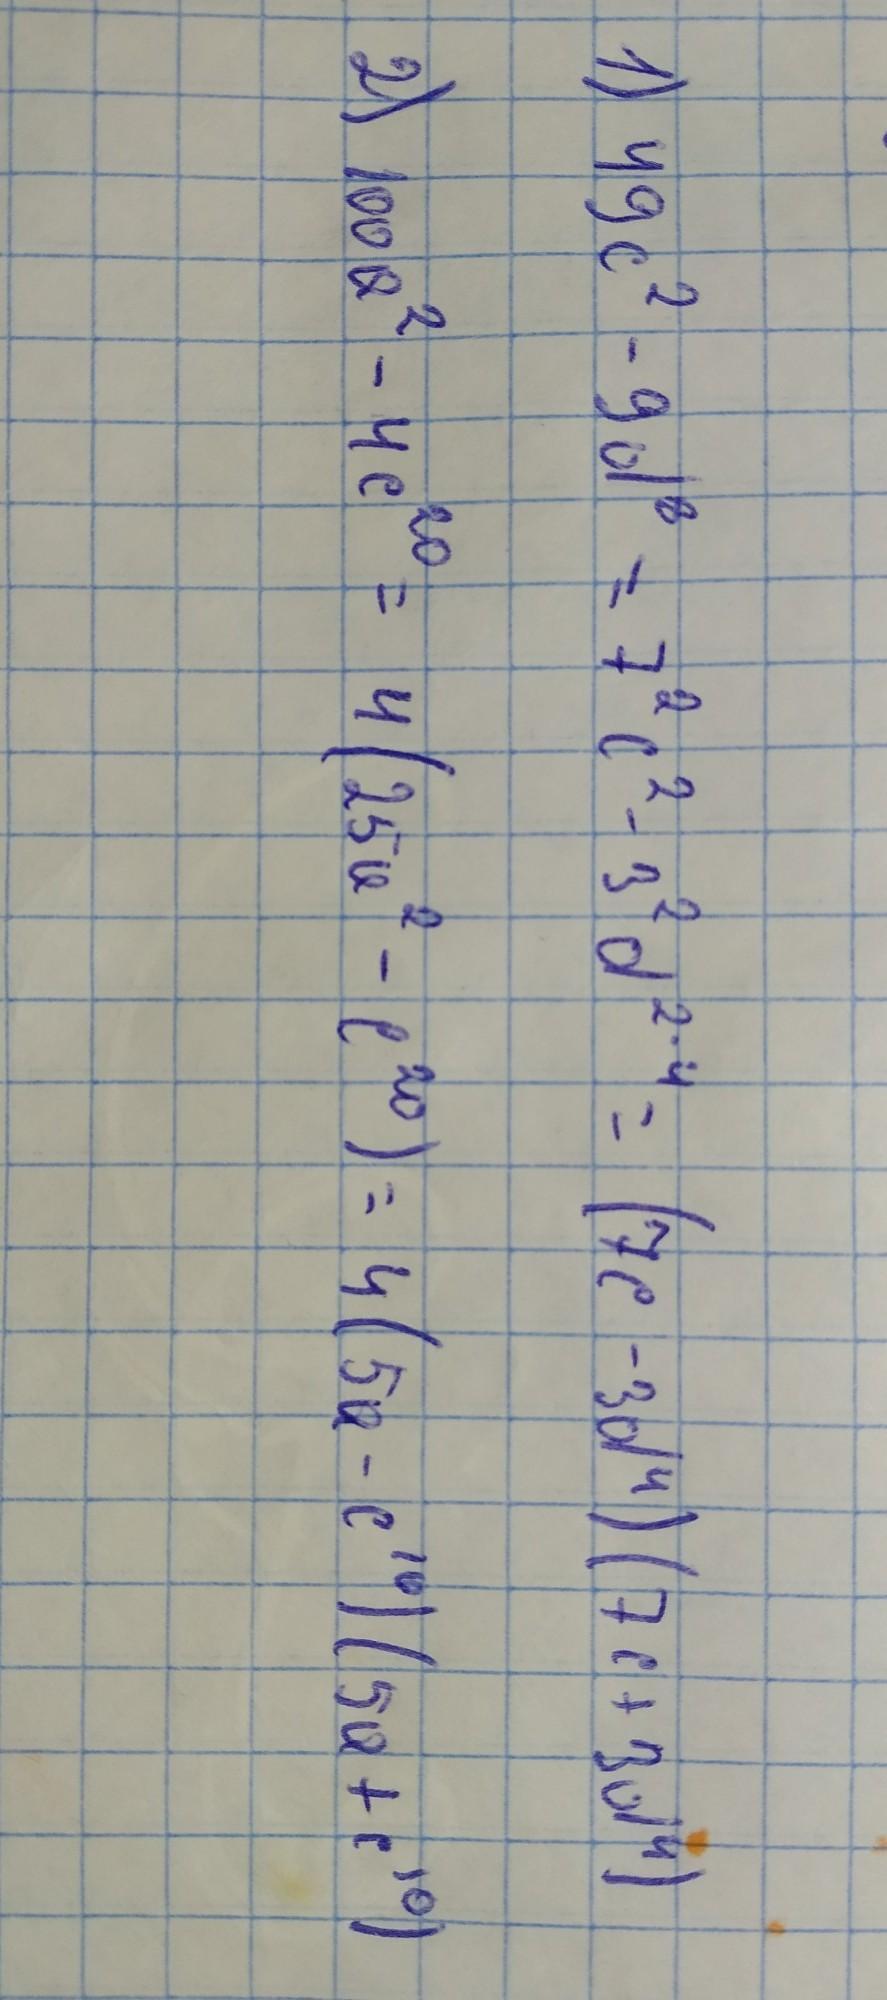 1) 49c² - 9d⁸ = 7²c² - 3²d²·⁴ = (7c - 3d⁴)(7c + 3d⁴)
2) 100a² - 4c²⁰ = 4(25a² - c²⁰) = 4(5a - c¹⁰)(5a + c¹⁰)